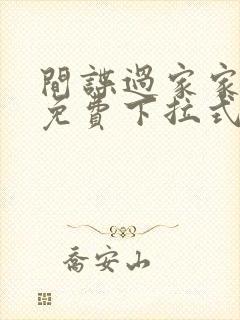 間諜過家家
免費下拉式
喬安山